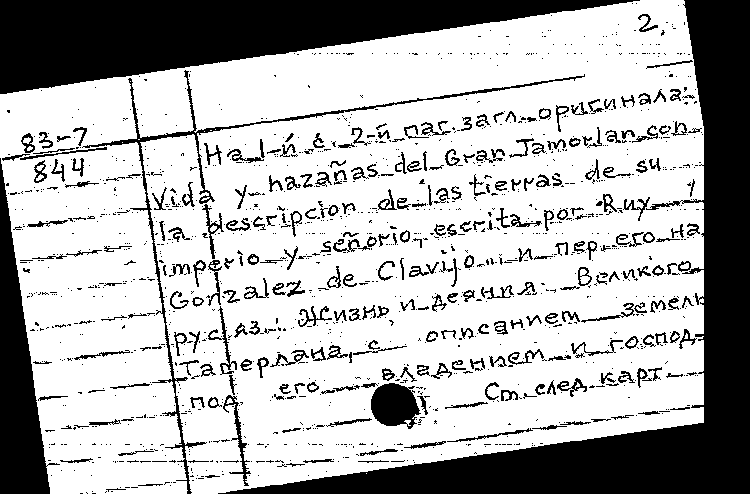 2.
83-7
844
На 1-й с. 2-й паг. загл. оригинала:
Vida y hazañas del Gran Tamorlan con
la descripcion de las tierras de su
imperio y señorio, escrita por Ruy
Gonzalez de Clavijo... и пер. его на
рус. яз.: Жизнь и деяния Великого
Тамерлана, с описанием земель
под его владением и господ-
См. след. карт.